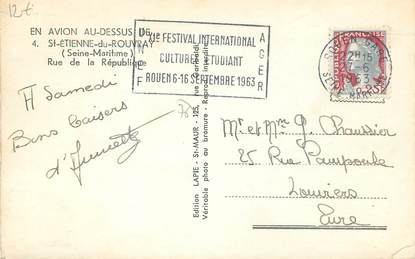 12€
EN AVION AU-DESSUS DE
4. St-ETIENNE-du-ROUVRAY
(Seine-Maritime)
Rue de la République
FESTIVAL INTERNATIONAL
CULTUREL ETUDIANT
ROUEN 6-16 SEPTEMBRE 1963
ROUEN GARE
2H15
7-6
1963
A Samedi
Bons Baisers
Edition LAPIE - St-MAUR - 125,
Véritable photo au bromure - Reproduction interdite
Mr et Mme P. Chaussier
25 Rue Pampoule
Louviers
Eure